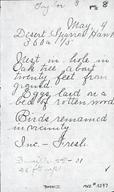 May, 4
Desert Sparrow Hawk
360a 1/5
Nest in hole in
Oak tree about
twenty feet from
ground.
Eggs laid on a
bed of rotten wood
Birds remained
in vicinity
Inc - Fresh.